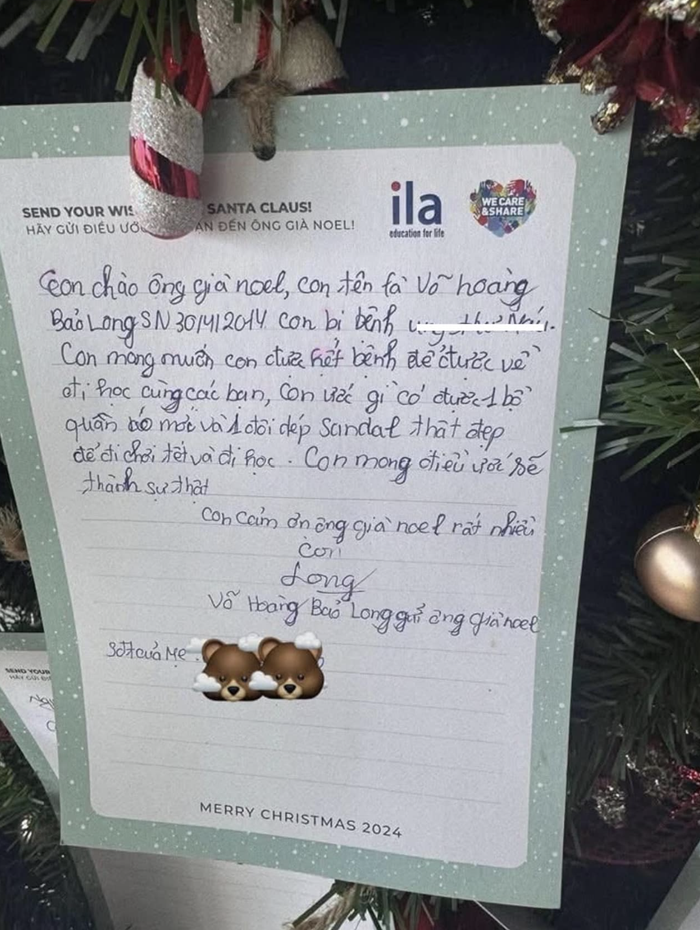 SEND YOUR SANTA CLAUS!
HÃY GỬI ĐIỀU ĐẾN ÔNG GIÀ NOEL!
ila
education for life
WE CARE
&SHARE
Con chào ông già noel, con tên là Võ hoàng
Bảo Long SN 30/4/2014 con bị bệnh
Con mong muốn con được hết bệnh để được về
đi học cùng các bạn, Con ước gì có được 1 bộ
quần áo mới và 1 đôi dép Sandal thật đẹp
để đi chơi tết và đi học. Con mong điều ước sẽ
thành sự thật
Con cảm ơn ông già noel rất nhiều
con
Long
Võ Hoàng Bảo Long gửi ông già noel
Sđt của Mẹ
SEND YOUR
MERRY CHRISTMAS 2024